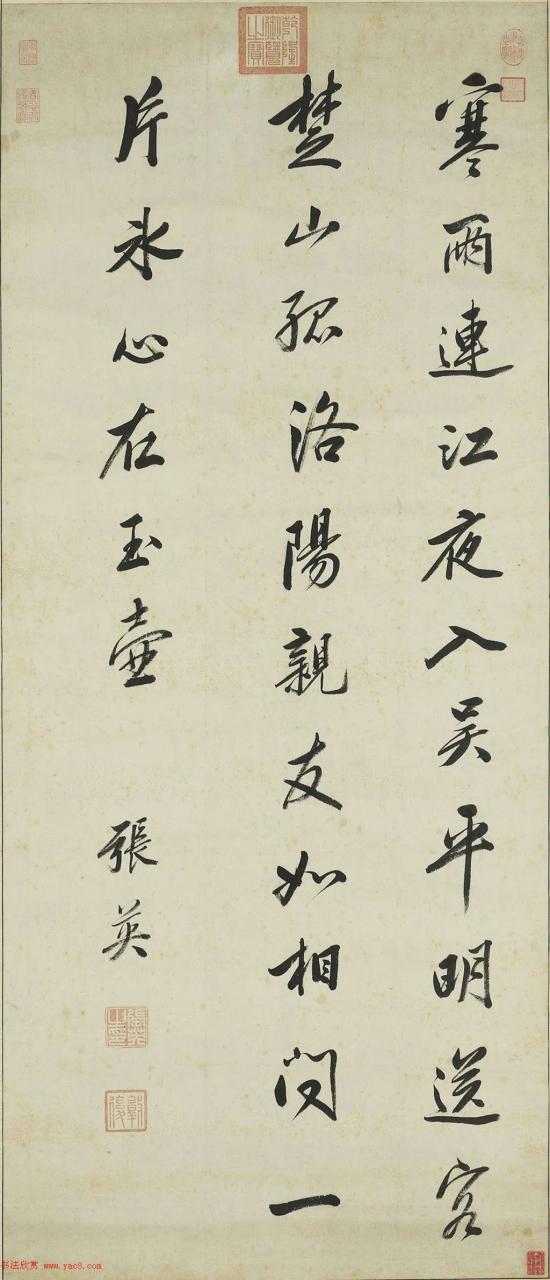 寒雨連江夜入吴平明送客
楚山孤洛陽親友如相問一
片冰心在玉壺
張英
乾隆御覽之寶
书法欣赏 www.yac8.com